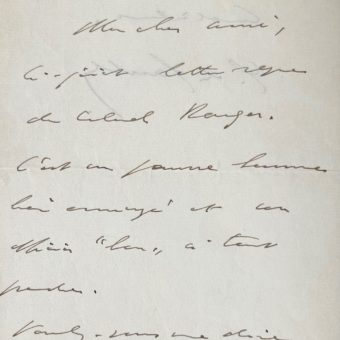 Mon cher ami,
Ci-joint lettre reçue
du Colonel Rouger.
C'est un pauvre homme
bien ennuyé et un
"bon" à tout
perdre.
Voulez-vous me dire